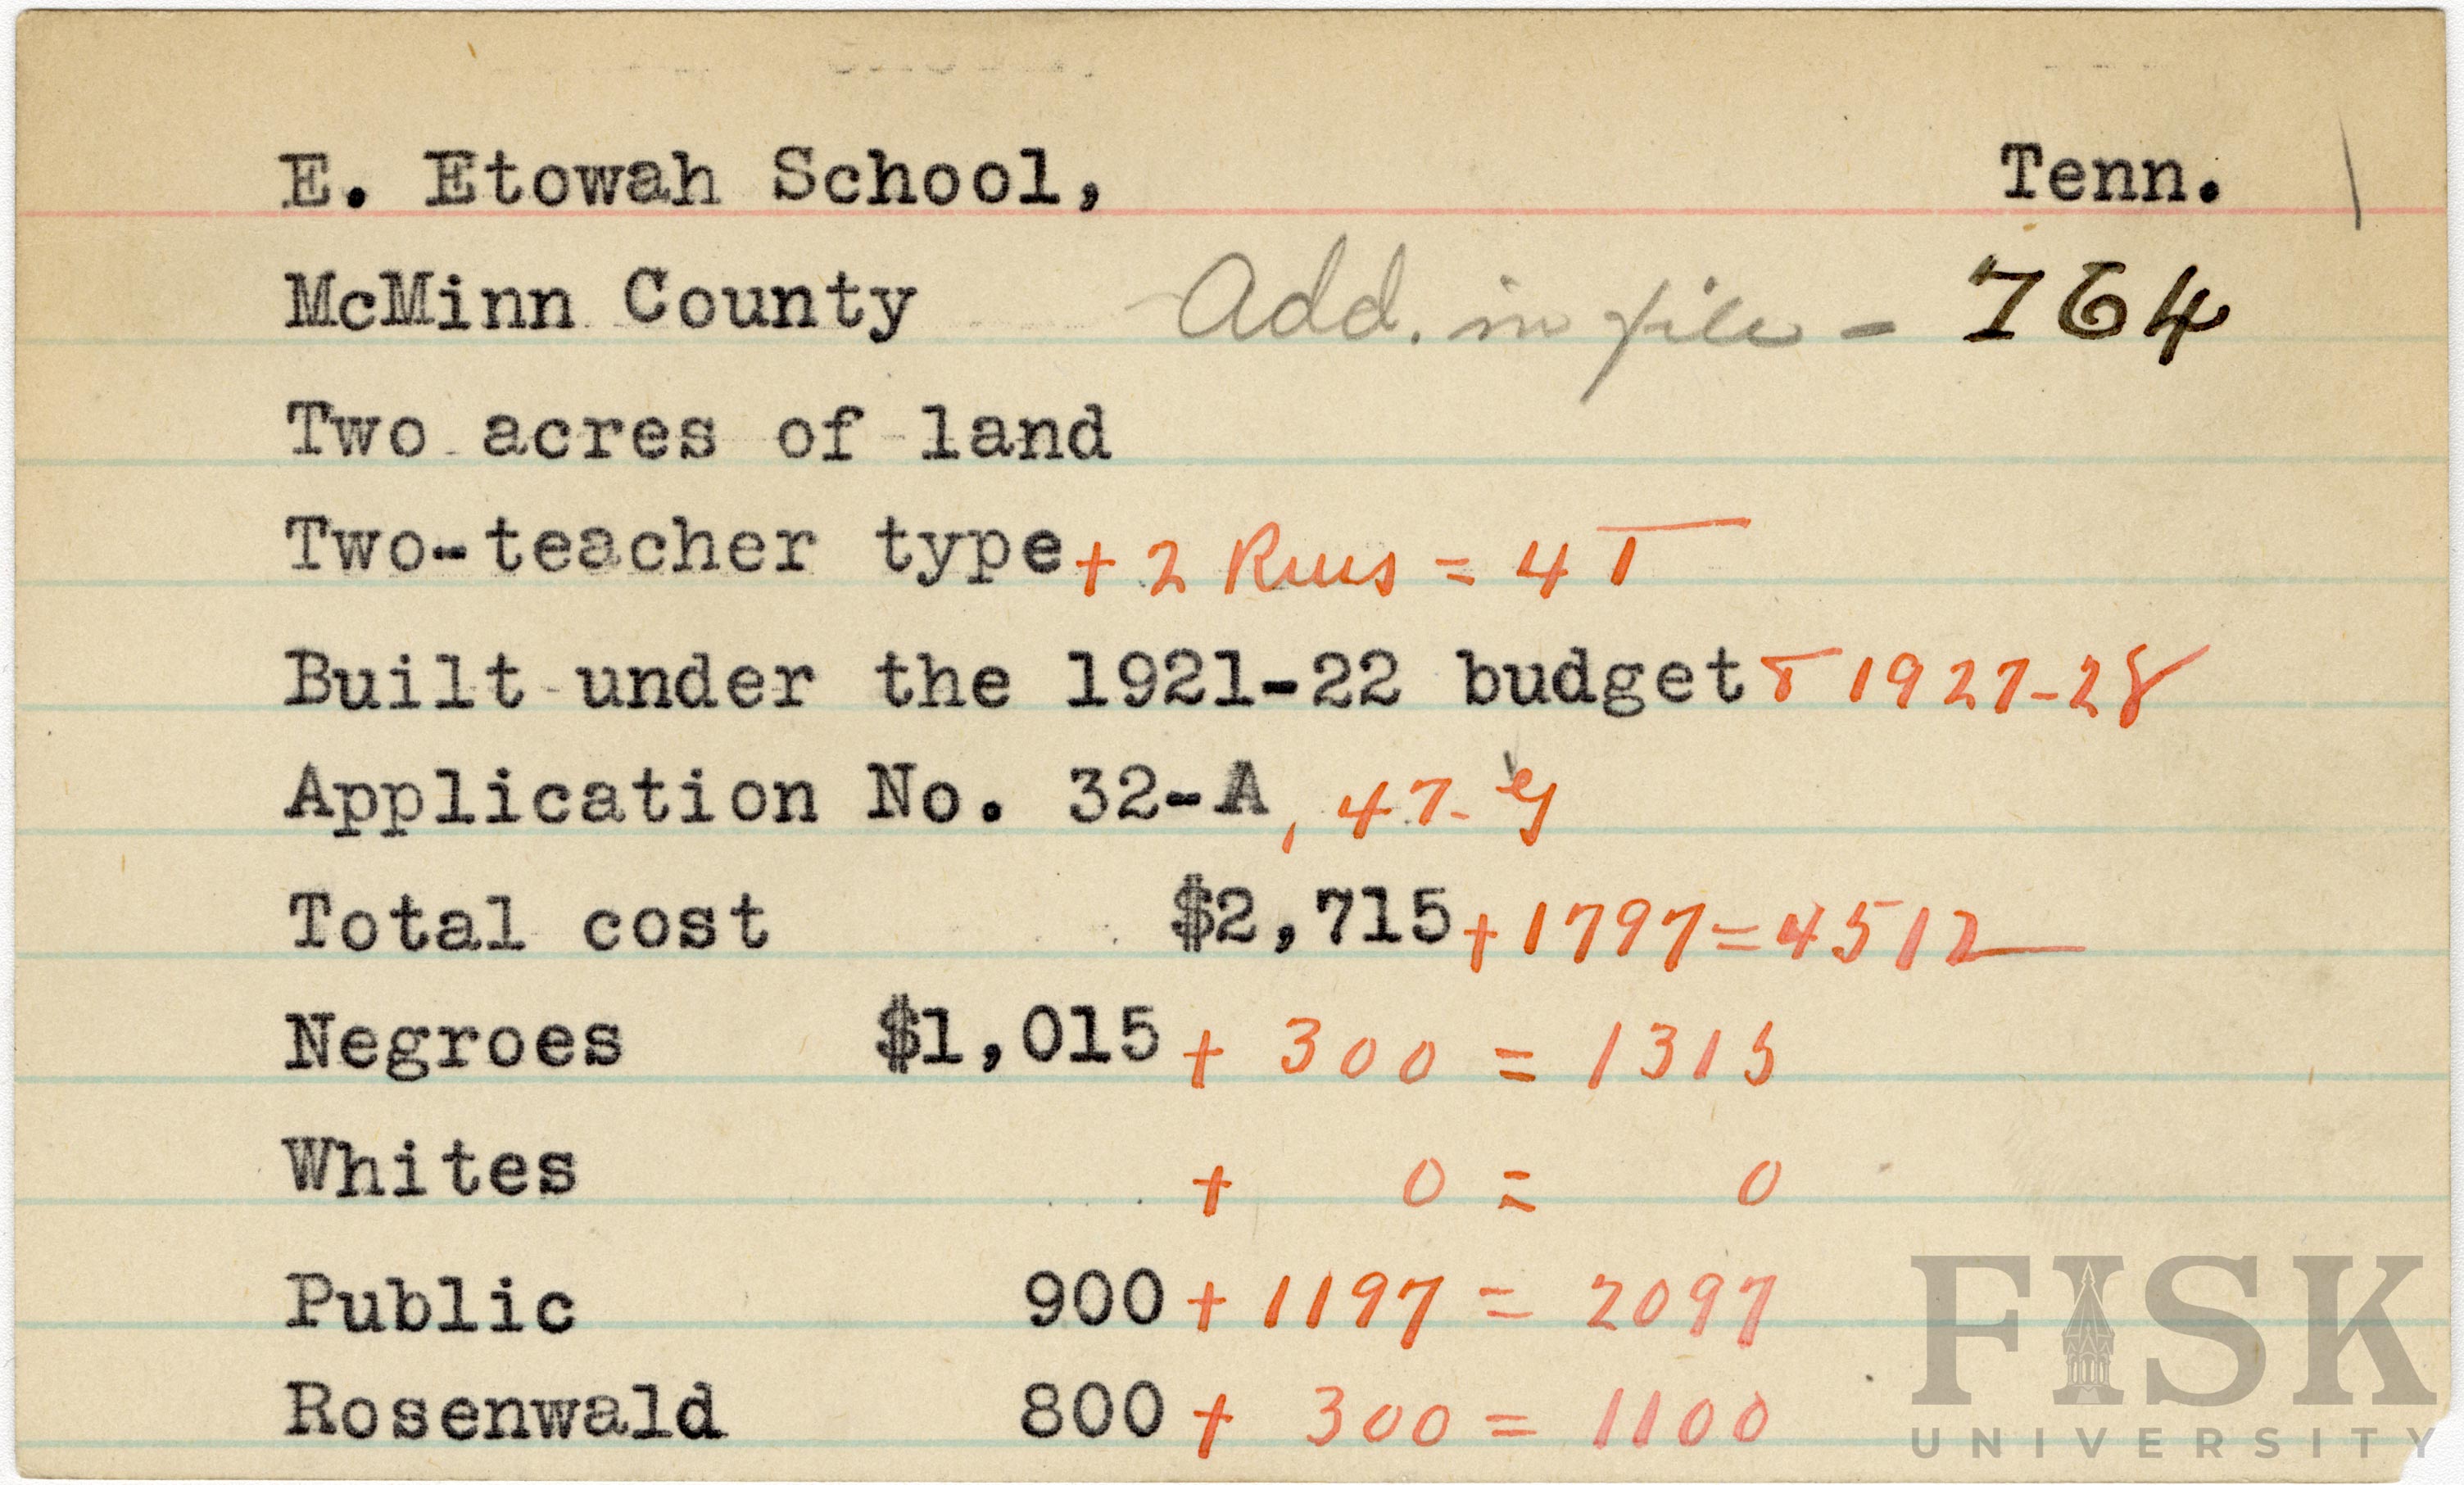 E. Etowah School, Tenn.
McMinn County Add. in file - 764
Two acres of land
Two-teacher type + 2 Rms = 4 T
Built under the 1921-22 budget + 1927-28
Application No. 32-A, 47-G
Total cost $2,715 + 1797 = 4512
Negroes $1,015 + 300 = 1315
Whites + 0 = 0
Public 900 + 1197 = 2097
Rosenwald 800 + 300 = 1100
FISK
UNIVERSITY